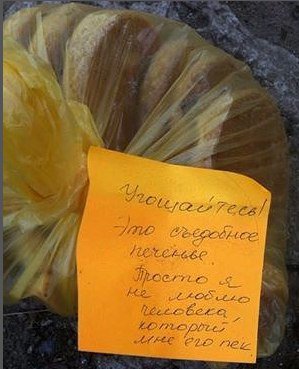 Угощайтесь!
Это съедобное
печенье.
Просто я
не люблю
человека,
который
мне его пек.